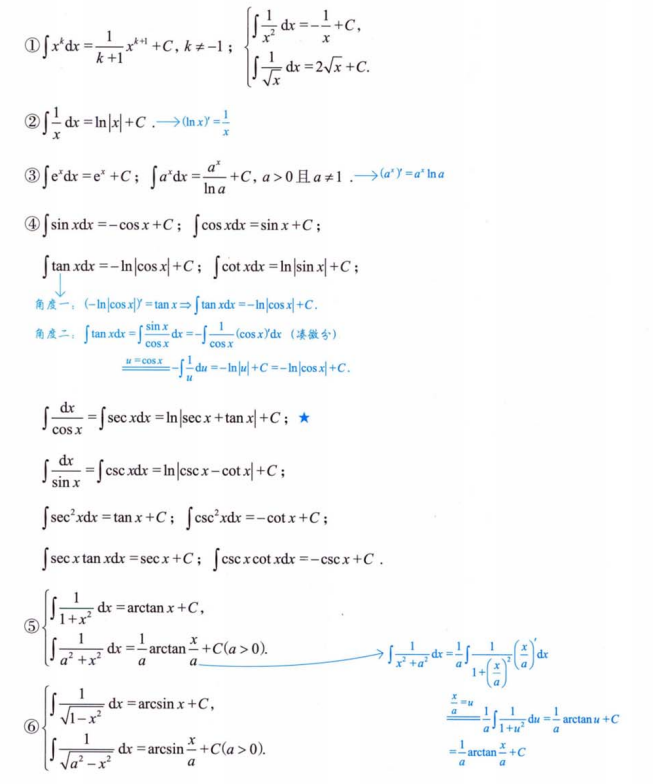 ① ∫x^k dx = 1/(k+1) x^(k+1) + C, k ≠ −1；{ ∫1/x² dx = −1/x + C,
∫1/√x dx = 2√x + C.
② ∫1/x dx = ln|x| + C . → (ln x)′ = 1/x
③ ∫e^x dx = e^x + C；∫a^x dx = a^x/ln a + C, a > 0 且 a ≠ 1 . → (a^x)′ = a^x ln a
④ ∫sin xdx = −cos x + C；∫cos xdx = sin x + C；
∫tan xdx = −ln|cos x| + C；∫cot xdx = ln|sin x| + C；
角度一：(−ln|cos x|)′ = tan x ⇒ ∫tan xdx = −ln|cos x| + C.
角度二：∫tan xdx = ∫sin x/cos x dx = −∫1/cos x (cos x)′dx（凑微分）
u = cos x
= −∫1/u du = −ln|u| + C = −ln|cos x| + C.
∫dx/cos x = ∫sec xdx = ln|sec x + tan x| + C；★
∫dx/sin x = ∫csc xdx = ln|csc x − cot x| + C；
∫sec²xdx = tan x + C；∫csc²xdx = −cot x + C；
∫sec x tan xdx = sec x + C；∫csc x cot xdx = −csc x + C .
⑤ { ∫1/(1+x²) dx = arctan x + C,
∫1/(a²+x²) dx = 1/a arctan x/a + C(a > 0). → ∫1/(x²+a²) dx = 1/a ∫1/(1+(x/a)²) (x/a)′ dx
x/a = u
= 1/a ∫1/(1+u²) du = 1/a arctan u + C
= 1/a arctan x/a + C
⑥ { ∫1/√(1−x²) dx = arcsin x + C,
∫1/√(a²−x²) dx = arcsin x/a + C(a > 0).